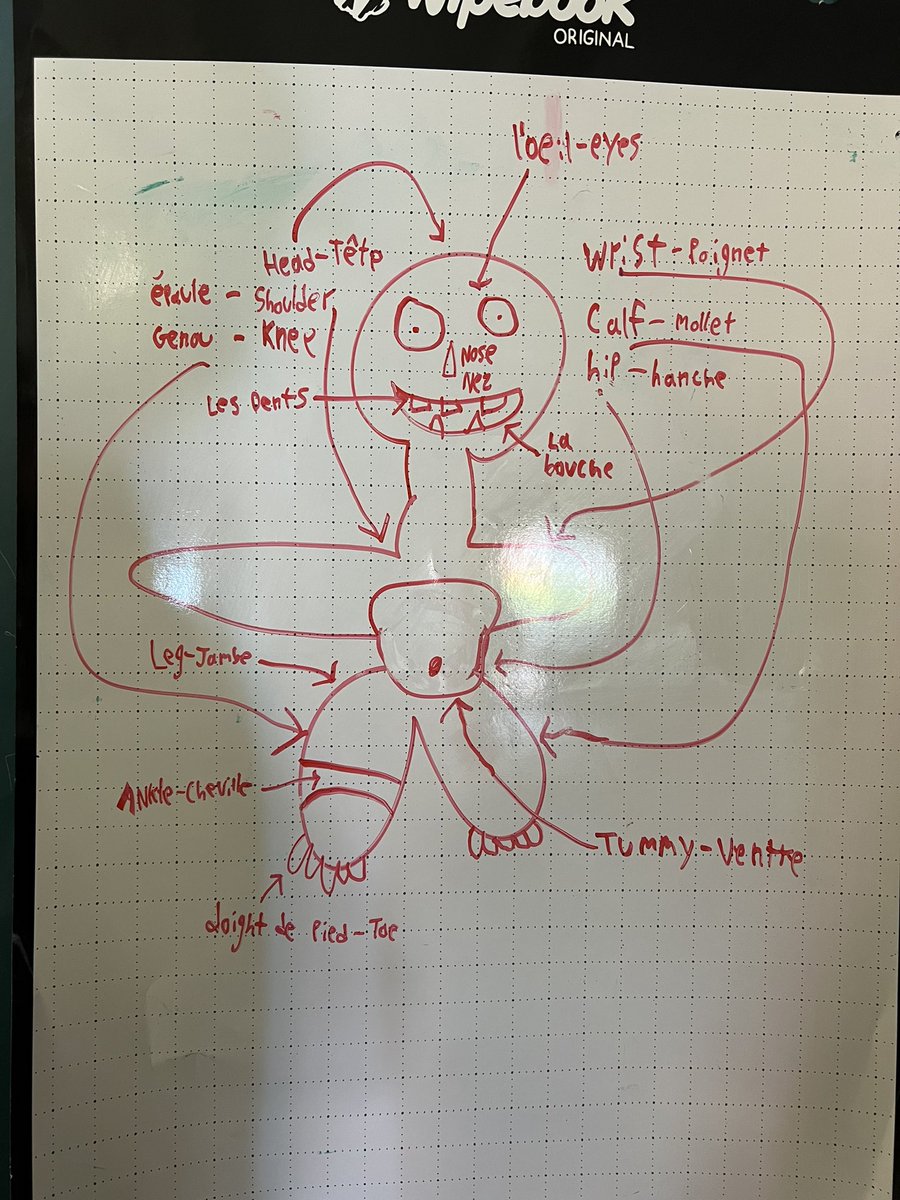 Wipebook
ORIGINAL
l'oeil-eyes
Head-Tête
épaule - Shoulder
Genou - Knee
Wrist-Poignet
Calf-mollet
hip-hanche
Nose
Nez
Les Dents
La
bouche
Leg-Jambe
Ankle-Cheville
Tummy-Ventre
doight de pied-Toe